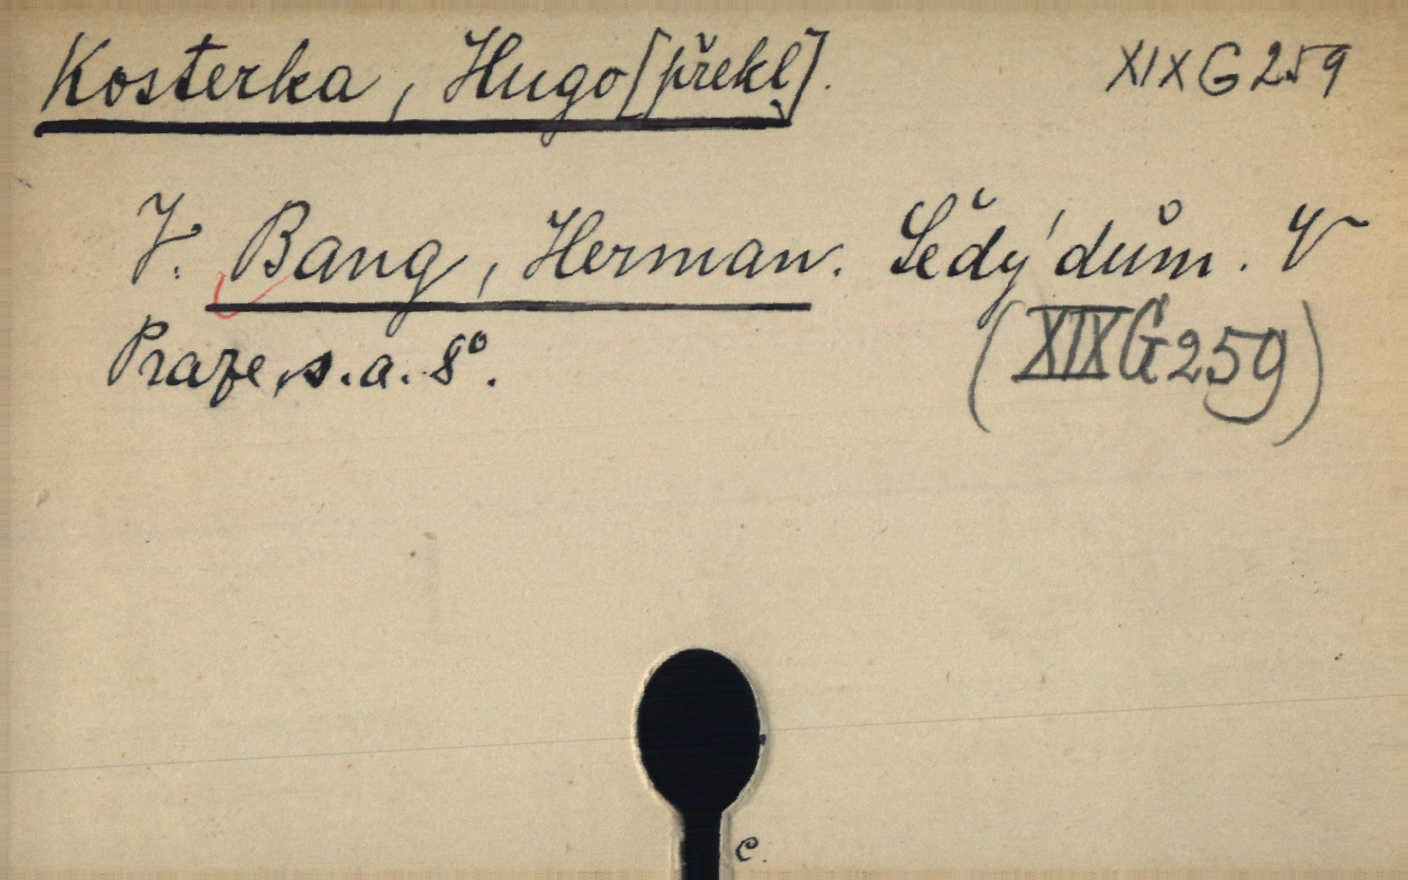 Kosterka, Hugo [překl]. XIX G 259
V. Bang, Herman. Šedý dům. V
Praze, s.a. 8°.
(XIX G 259)
c.